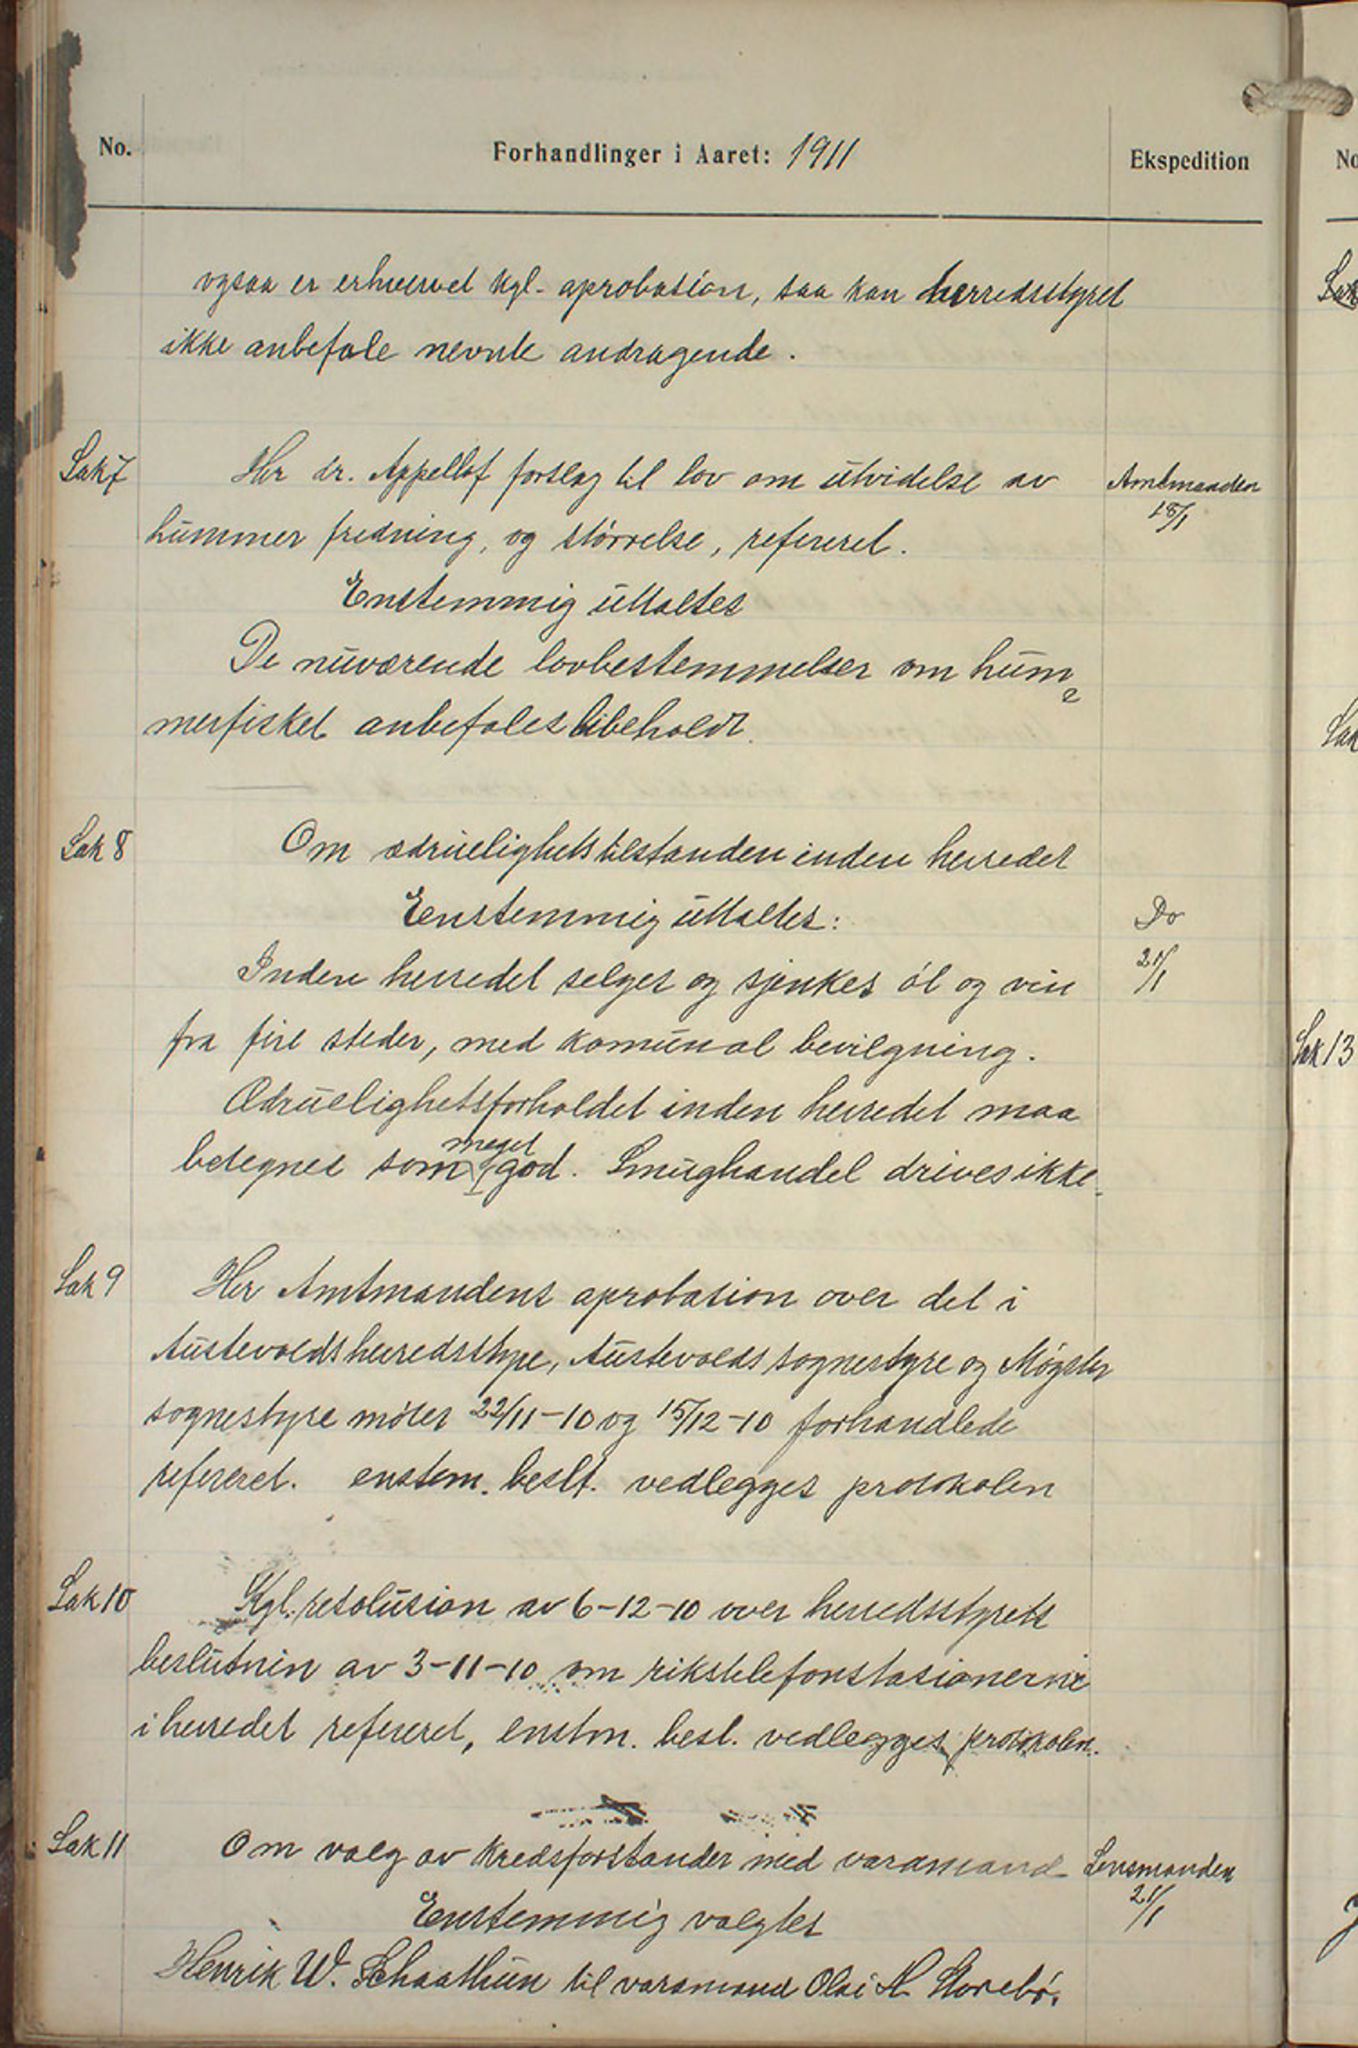 No. Forhandlinger i Aaret: 1911 Ekspedition
ogsaa er erhvervet kgl. aprobasion, saa kan herredsstyret
ikke anbefale nevnte andragende.
Sak 7 Hr dr. Appellöf forslag til lov om utvidelse av Amtmanden
hummer fredning, og størrelse, referert. 18/1
Enstemmig uttaltes
De nuværende lovbestemmelser om hum=
merfisket anbefales bibeholdt.
Sak 8 Om ædruelighetstilstanden inden herredet
Eenstemmig uttaltes: Do
Inden herredet selges og sjenkes øl og vin 21/1
fra fire steder, med komunal bevilgning.
Ædruelighetsforholdet inden herredet maa
betegnes som meget god. Smughandel drives ikke.
Sak 9 Hr Amtmandens aprobasion over det i
Austevolds herredstyre, Austevolds sognestyre og Møgster
sognestyre møter 22/11-10 og 15/12-10 forhandlede
refereret. enstem. beslt. vedlegges protokolen
Sak 10 Kgl. resolusion av 6-12-10 over herredsstyrets
beslutnin av 3-11-10 om rikstelefonstasionerne
i herredet refereret, enstm. besl. vedlegges protokolen.
Sak 11 Om valg av kredsforstander med varamand Lensmanden
Enstemmig valgtes 21/1
Henrik W. Schaathun til varamand Olai H. Storebø.
No
Sak
Sak
Sak 13